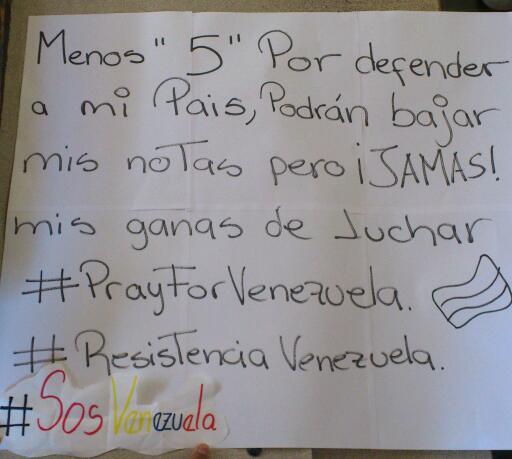 Menos "5" Por defender
a mi Pais, Podrán bajar
mis noTas pero ¡JAMAS!
mis ganas de luchar
#PrayForVenezuela.
#ResisTencia Venezuela.
#Sos Venezuela